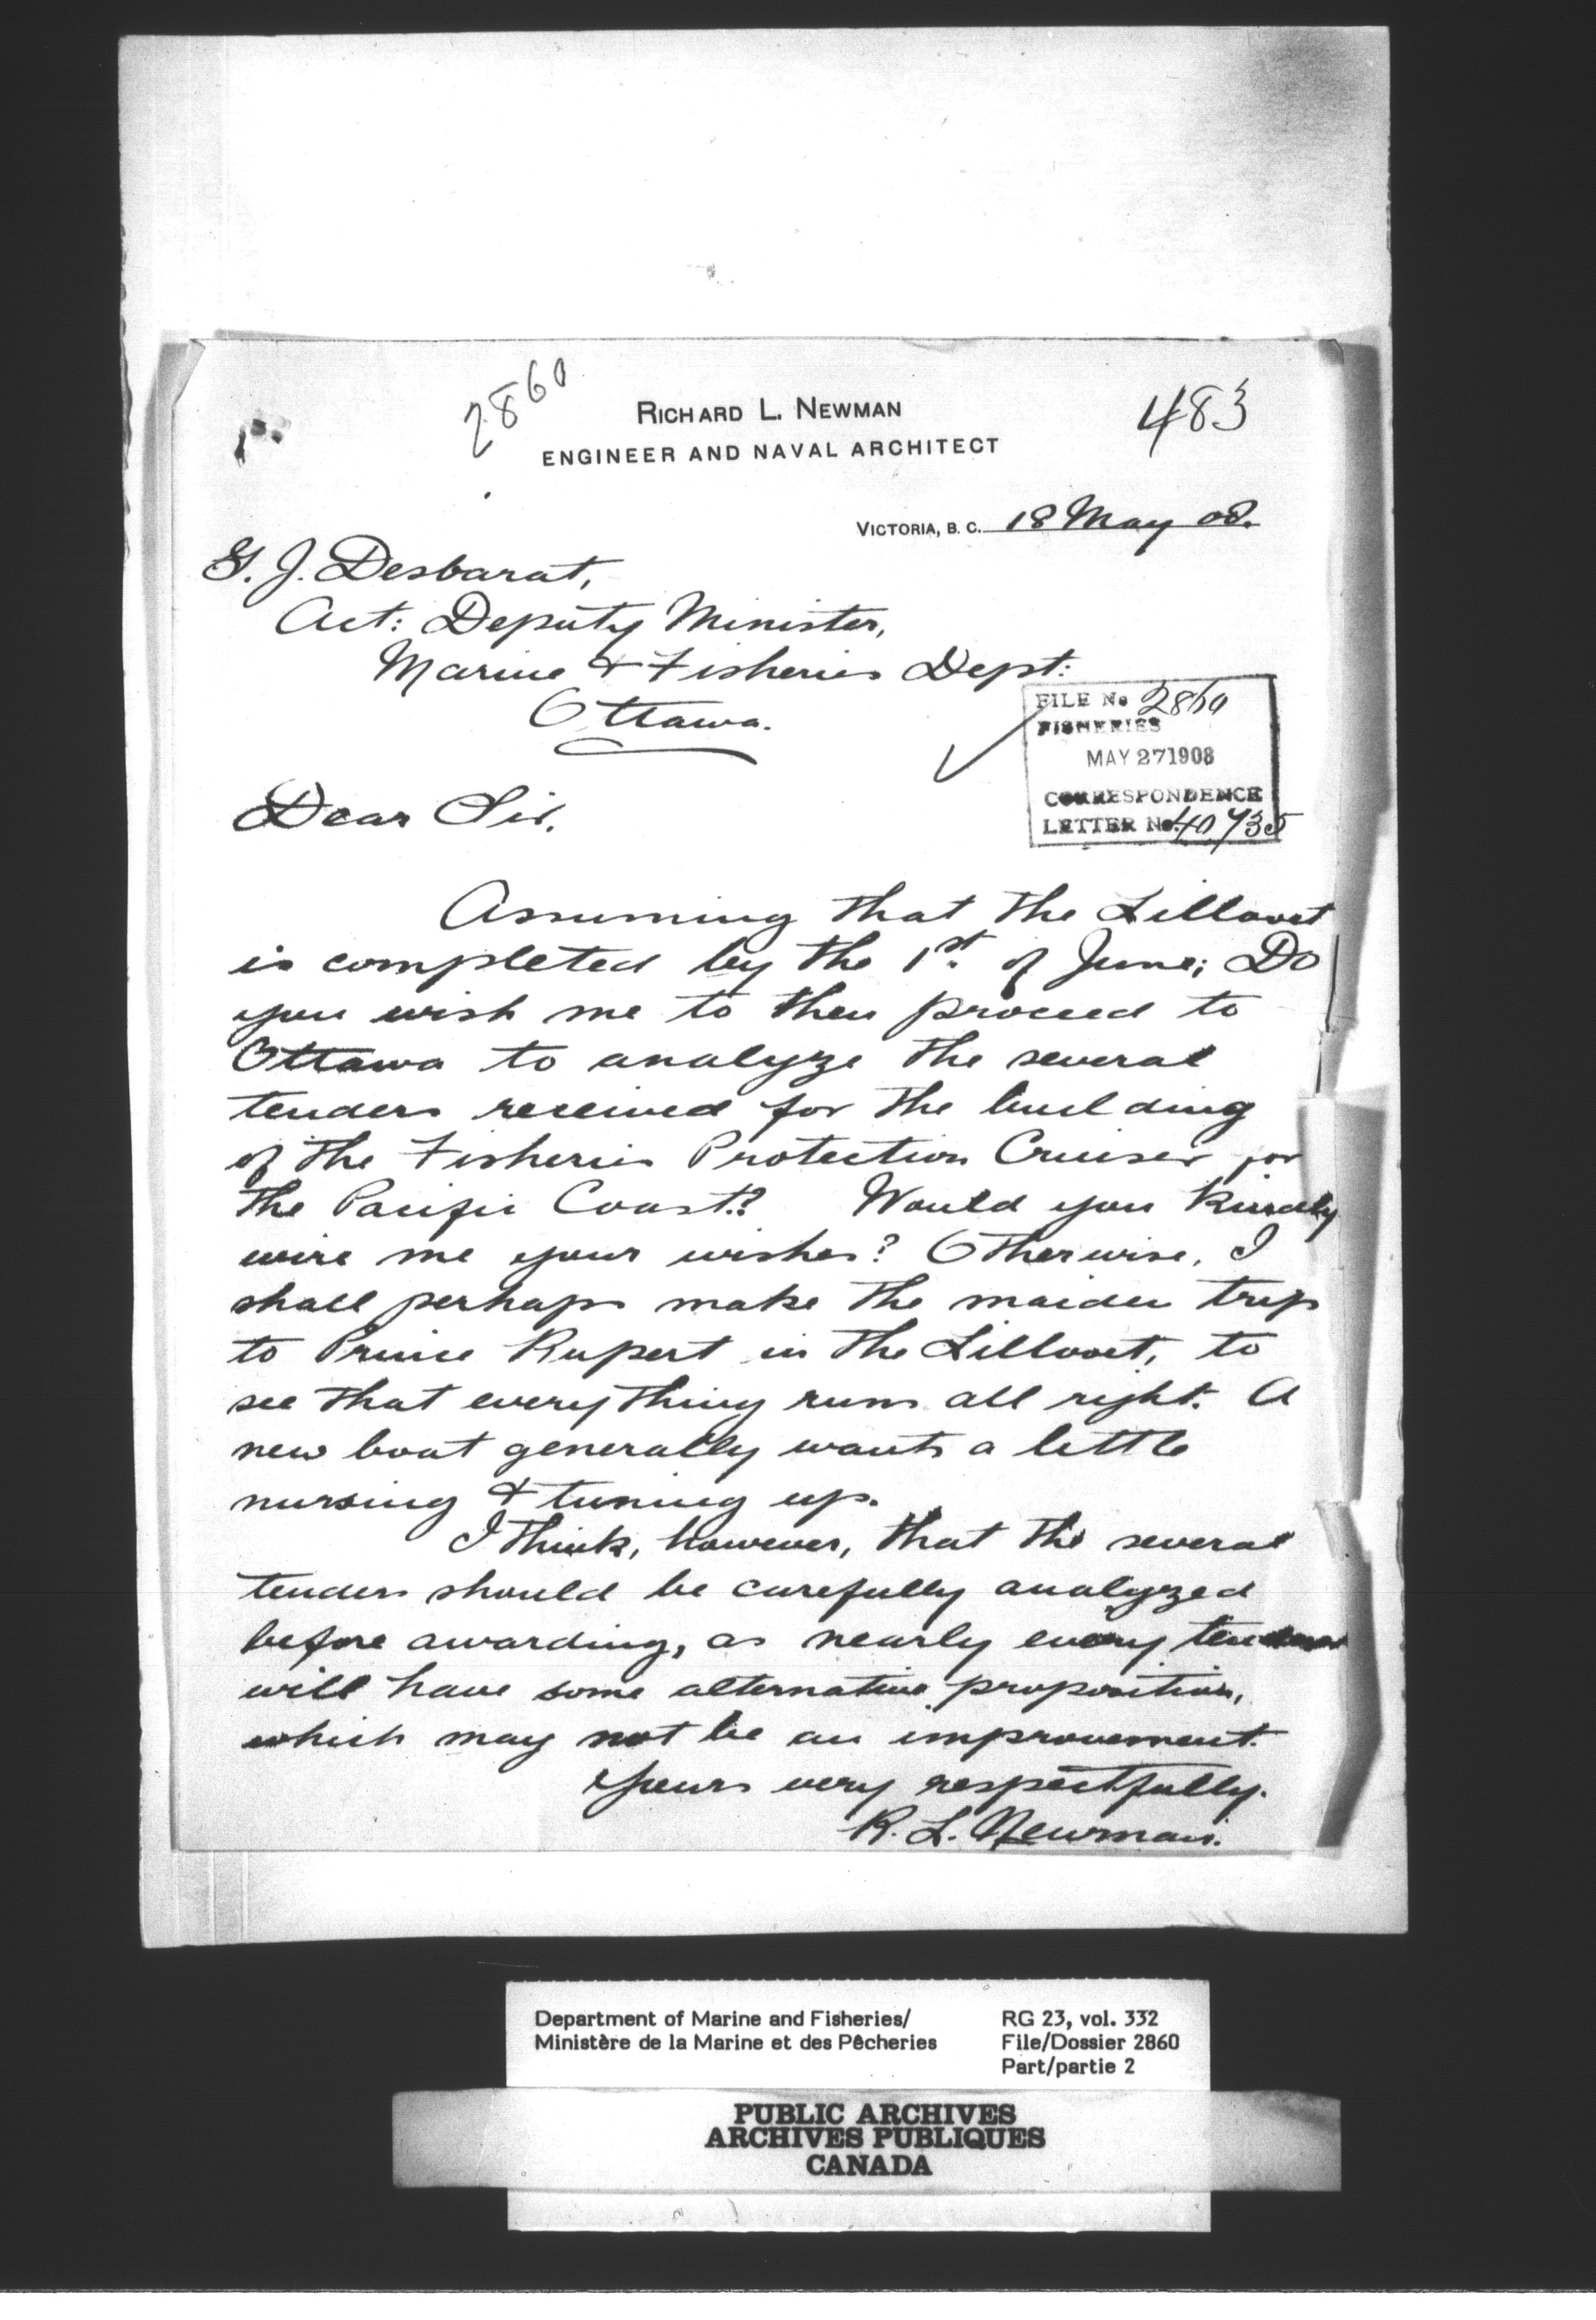 2860
RICHARD L. NEWMAN
483
ENGINEER AND NAVAL ARCHITECT
VICTORIA, B. C. 18 May 08.
G. J. Desbarat,
Act: Deputy Minister,
Marine & Fisheries Dept:
Ottawa.
FILE No 2860
FISHERIES
MAY 27 1908
CORRESPONDENCE
LETTER No. 40735
Dear Sir,
Assuming that the Lillooet
is completed by the 1st. of June; Do
you wish me to then proceed to
Ottawa to analyze the several
tenders received for the building
of the Fisheries Protection Cruiser for
the Pacific Coast.? Would you kindly
wire me your wishes? Otherwise, I
shall perhaps make the maiden trip
to Prince Rupert in the Lillooet, to
see that everything runs all right. A
new boat generally wants a little
nursing & tuning up.
I think, however, that the several
tenders should be carefully analyzed
before awarding, as nearly every tender
will have some alternative proposition,
which may not be an improvement.
Yours very respectfully.
R. L. Newman.
Department of Marine and Fisheries/
Ministère de la Marine et des Pêcheries
RG 23, vol. 332
File/Dossier 2860
Part/partie 2
PUBLIC ARCHIVES
ARCHIVES PUBLIQUES
CANADA